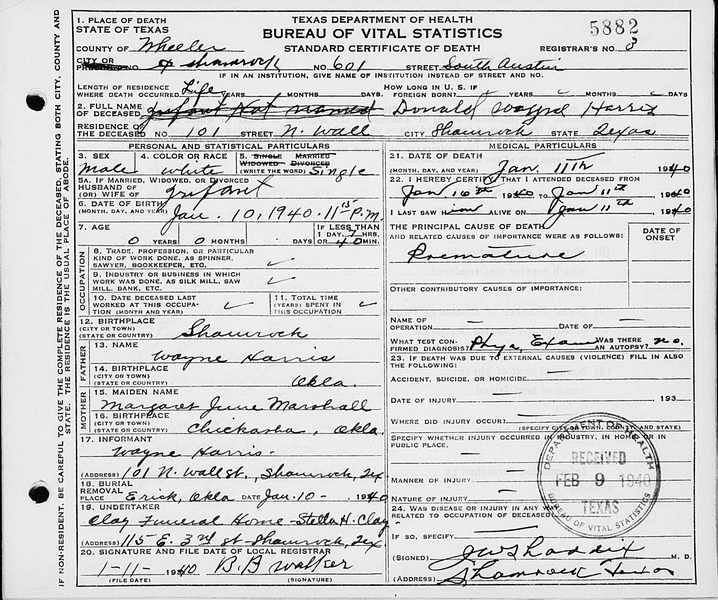 TEXAS DEPARTMENT OF HEALTH
BUREAU OF VITAL STATISTICS
STANDARD CERTIFICATE OF DEATH
5882
REGISTRAR'S NO. 3
1. PLACE OF DEATH
STATE OF TEXAS
COUNTY OF Wheeler
CITY OR Shamrock NO. 601 STREET South Austin
IF IN AN INSTITUTION, GIVE NAME OF INSTITUTION INSTEAD OF STREET AND NO.
LENGTH OF RESIDENCE WHERE DEATH OCCURRED Life YEARS MONTHS DAYS HOW LONG IN U. S. IF FOREIGN BORN? YEARS MONTHS DAYS
2. FULL NAME OF DECEASED Infant Not named Donald Wayne Harris
RESIDENCE OF THE DECEASED NO. 101 STREET N. Wall CITY Shamrock STATE Texas
PERSONAL AND STATISTICAL PARTICULARS
3. SEX Male
4. COLOR OR RACE White
5. SINGLE MARRIED WIDOWED DIVORCED (WRITE THE WORD) Single
5A. IF MARRIED, WIDOWED, OR DIVORCED HUSBAND OF (OR) WIFE OF Infant
6. DATE OF BIRTH (MONTH, DAY, AND YEAR) Jan. 10, 1940 - 11 15 P.M.
7. AGE 0 YEARS 0 MONTHS DAYS IF LESS THAN 1 DAY, 7 HRS. OR 40 MIN.
OCCUPATION
8. TRADE, PROFESSION, OR PARTICULAR KIND OF WORK DONE, AS SPINNER, SAWYER, BOOKKEEPER, ETC.
9. INDUSTRY OR BUSINESS IN WHICH WORK WAS DONE, AS SILK MILL, SAW MILL, BANK, ETC.
10. DATE DECEASED LAST WORKED AT THIS OCCUPATION (MONTH AND YEAR)
11. TOTAL TIME (YEARS) SPENT IN THIS OCCUPATION
12. BIRTHPLACE (CITY OR TOWN) (STATE OR COUNTRY) Shamrock
FATHER
13. NAME Wayne Harris
14. BIRTHPLACE (CITY OR TOWN) (STATE OR COUNTRY) Okla.
MOTHER
15. MAIDEN NAME Margaret June Marshall
16. BIRTHPLACE (CITY OR TOWN) (STATE OR COUNTRY) Chickasha, Okla.
17. INFORMANT Wayne Harris
(ADDRESS) 101 N. Wall St., Shamrock, Tex
18. BURIAL REMOVAL
PLACE Erick, Okla DATE Jan. 10 - 1940
19. UNDERTAKER Clay Funeral Home - Stella H. Clay
(ADDRESS) 115 E. 3rd St - Shamrock, Tex.
20. SIGNATURE AND FILE DATE OF LOCAL REGISTRAR
1-11- 1940 B.B. Walker
(FILE DATE) (SIGNATURE)
MEDICAL PARTICULARS
21. DATE OF DEATH (MONTH, DAY, AND YEAR) Jan. 11th 1940
22. I HEREBY CERTIFY THAT I ATTENDED DECEASED FROM
Jan 10th 1940 TO Jan 11th 1940
I LAST SAW HIM ALIVE ON Jan 11th 1940
THE PRINCIPAL CAUSE OF DEATH AND RELATED CAUSES OF IMPORTANCE WERE AS FOLLOWS: DATE OF ONSET
Premature
OTHER CONTRIBUTORY CAUSES OF IMPORTANCE:
NAME OF OPERATION DATE OF
WHAT TEST CONFIRMED DIAGNOSIS? Phys. Exam WAS THERE AN AUTOPSY? no.
23. IF DEATH WAS DUE TO EXTERNAL CAUSES (VIOLENCE) FILL IN ALSO THE FOLLOWING:
ACCIDENT, SUICIDE, OR HOMICIDE
DATE OF INJURY 193
WHERE DID INJURY OCCUR? (SPECIFY CITY OR TOWN, COUNTY, AND STATE)
SPECIFY WHETHER INJURY OCCURRED IN INDUSTRY, IN HOME, OR IN PUBLIC PLACE.
MANNER OF INJURY
NATURE OF INJURY
24. WAS DISEASE OR INJURY IN ANY WAY RELATED TO OCCUPATION OF DECEASED?
IF SO, SPECIFY
(SIGNED) J W Shaddix M. D.
(ADDRESS) Shamrock Texas
DEPARTMENT OF HEALTH
RECEIVED
FEB 9 1940
TEXAS
BUREAU OF VITAL STATISTICS
IF NON-RESIDENT, BE CAREFUL TO GIVE THE COMPLETE RESIDENCE OF THE DECEASED STATING BOTH CITY, COUNTY AND STATE. THE RESIDENCE IS THE USUAL PLACE OF ABODE.